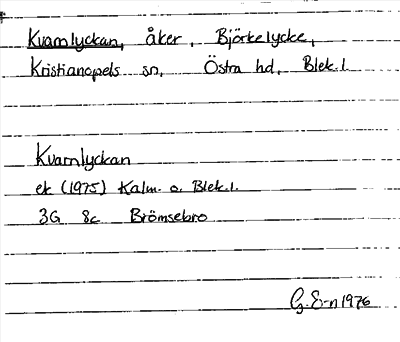 Kvarnlyckan, åker, Björkelycke,
Kristianopels sn, Östra hd, Blek.l.
Kvarnlyckan
ek (1975) Kalm. o. Blek.l.
3G 8c Brömsebro
G. E-n 1976